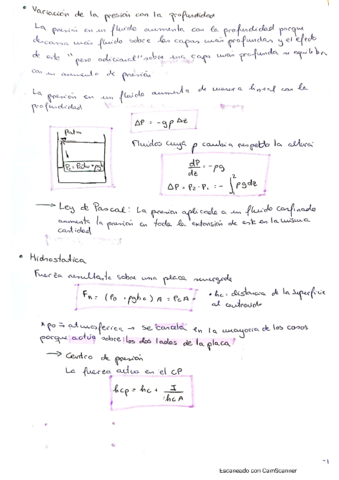 • Variación de la presión con la profundidad
La presión en un fluido aumenta con la profundidad porque
descansa más fluido sobre las capas más profundas y el efecto
de este "peso adicional" sobre una capa más profunda se equilibra
con un aumento de presión
. La presión en un fluido aumenta de manera lineal con la
profundidad
Patm
P₁ = Patm + ρg
ΔP = -gρ Δz
Fluidos cuya ρ cambia respecto la altura
dP/dz = -ρg
ΔP = P₂ - P₁ = - ∫₁² ρgdz
→ Ley de Pascal: La presión aplicada a un fluido confinado
aumenta la presión en toda la extensión de este en la misma
cantidad
• Hidrostática
Fuerza resultante sobre una placa sumergida
F_R = (P₀ + ρghc) A = PcA
• hc = distancia de la superficie
al centroide
* p₀ = atmosférica → Se cancela en la mayoría de los casos
porque actúa sobre los dos lados de la placa
→ Centro de presión
La fuerza actúa en el CP
hcp = hc + I/hcA
Escaneado con CamScanner